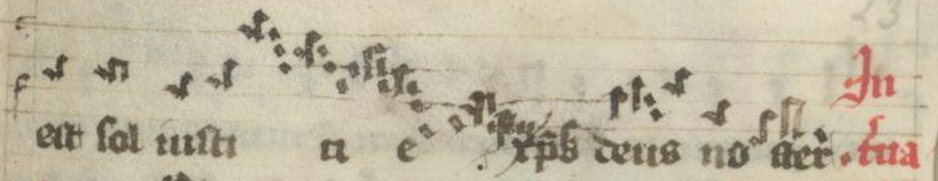 est sol iusti ti e xp̄s deus no ster. In
tua